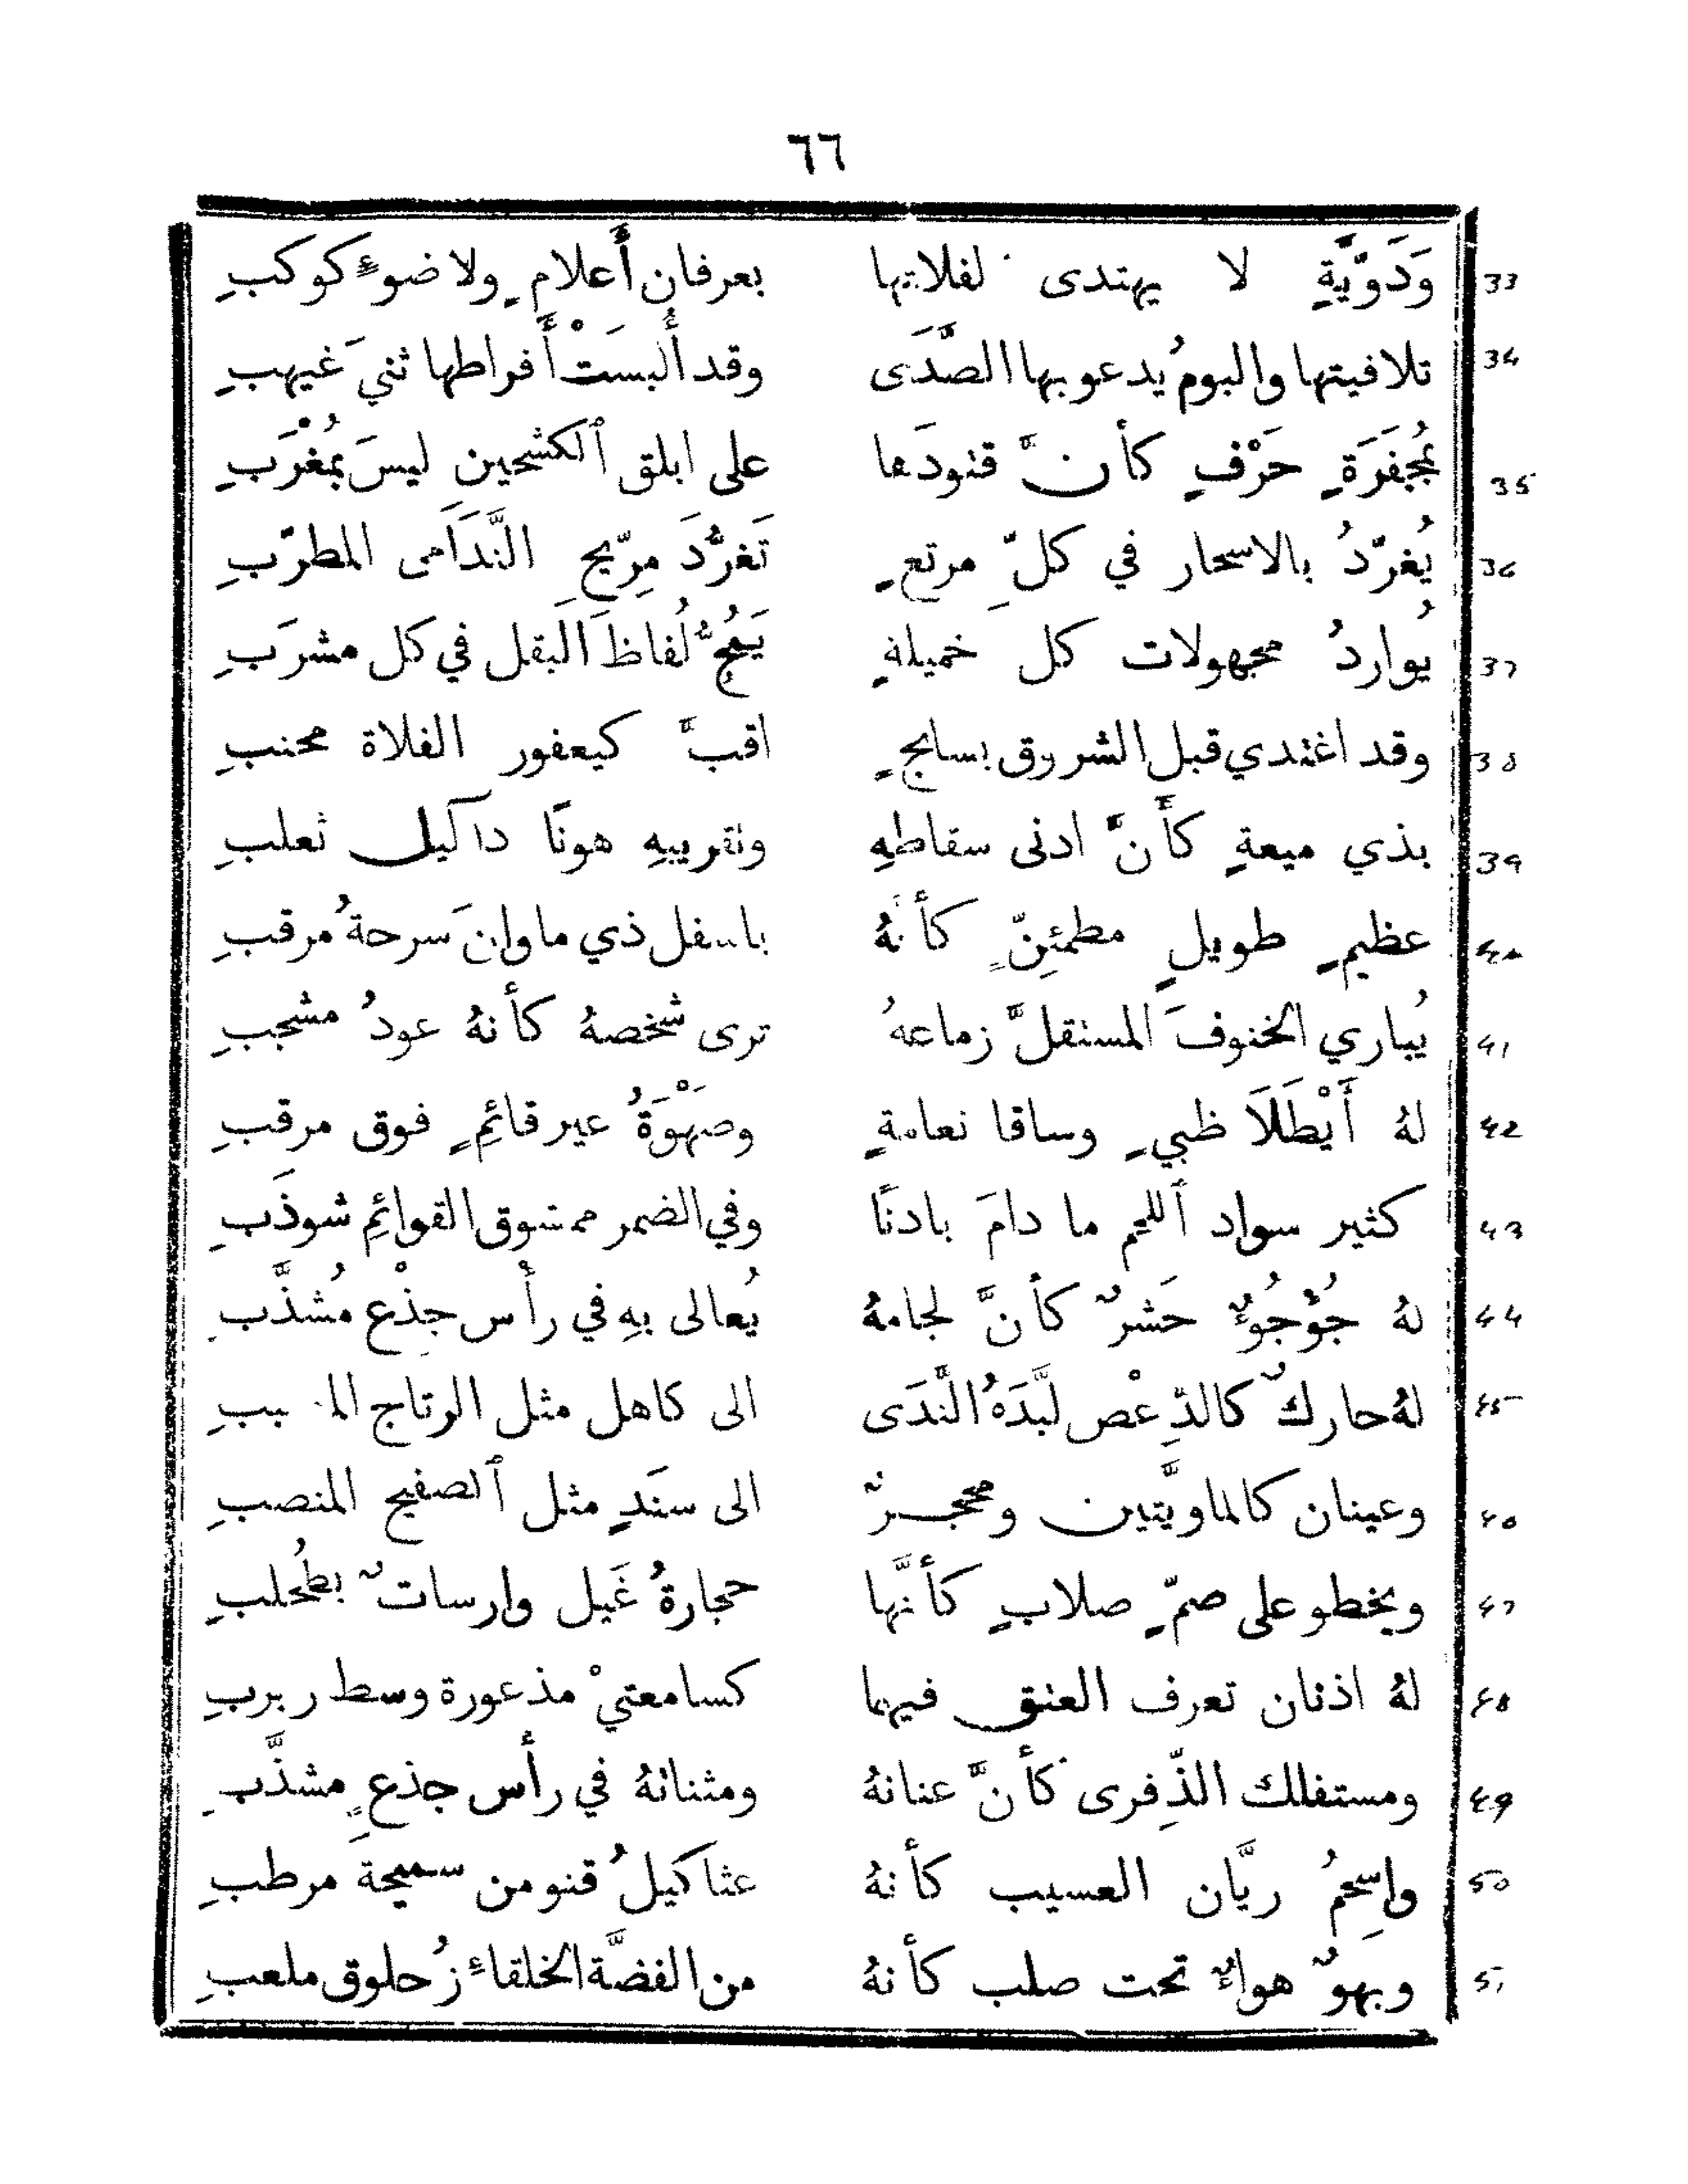 ٦٦
33 وَدَوّيَّةٍ لا يهتدى لفلاتها بعرفان أَعلامٍ ولا ضوءِ كوكبِ
34 تلافيتها والبومُ يدعو بها الصَّدَى وقد أُلبسَتْ أَفراطها ثنيَ غيهبِ
35 بمُجفَرَةٍ حَرْفٍ كأنَّ قتودَها على ابلق ٱلكشحين ليسَ بمُغْرَبِ
36 يُغرّدُ بالاسحار في كلّ مرتعٍ تَغرُّدَ مِرّيحِ النَّدَامى المطرّبِ
37 يُواردُ مجهولاتِ كل خميلةٍ يَمُجُّ لُفاظَ البَقل في كل مشرَبِ
38 وقد اغتدي قبل الشروق بسابحٍ اقبَّ كيعفور الفلاة محنبِ
39 بذي ميعةٍ كأَنَّ ادنى سقاطهِ وتقريبهِ هونًا داكيل ثعلبِ
40 عظيمٍ طويلٍ مطمئِنٍّ كأنهُ باسفل ذي ماوانَ سرحةُ مرقبِ
41 يُباري الخنوفَ المستقلَّ زماعهُ ترى شخصهُ كأنهُ عودُ مشجبِ
42 لهُ أَيْطَلَا ظبيٍ وساقا نعامةٍ وصَهْوَةُ عير قائِمٍ فوق مرقبِ
43 كثير سواد ٱللحم ما دامَ بادنًا وفي الضمر ممشوق القوائِم شوذَبِ
44 لهُ جُؤْجُوءٌ حَشرٌ كأنَّ لجامهُ يُعالى بهِ في رأْس جذْعٍ مُشذَّبِ
45 لهُ حاركٌ كالدِّعْص لَبَّدَهُ النَّدَى الى كاهل مثل الرتاج
46 وعينان كالماويَّتين ومحجرٌ الى سنَدٍ مثل ٱلصفيح المنصبِ
47 ويخطو على صمّ صلابٍ كأَنَّها حجارةُ غَيل وارساتٌ بطُحلبِ
48 لهُ اذنان تعرف العتق فيهما كسامعتيْ مذعورة وسط ربربِ
49 ومستفلك الذِّفرى كأنَّ عنانهُ ومثناتهُ في رأس جذعٍ مشذَّبِ
50 واسِحمُ ريَّان العسيب كأنهُ عثاكيلُ قنو من سميحةَ مرطبِ
51 وبهوٌ هواءٌ تحت صلب كأنهُ من الفضَّة الخلقاءِ زُحلوق ملعبِ